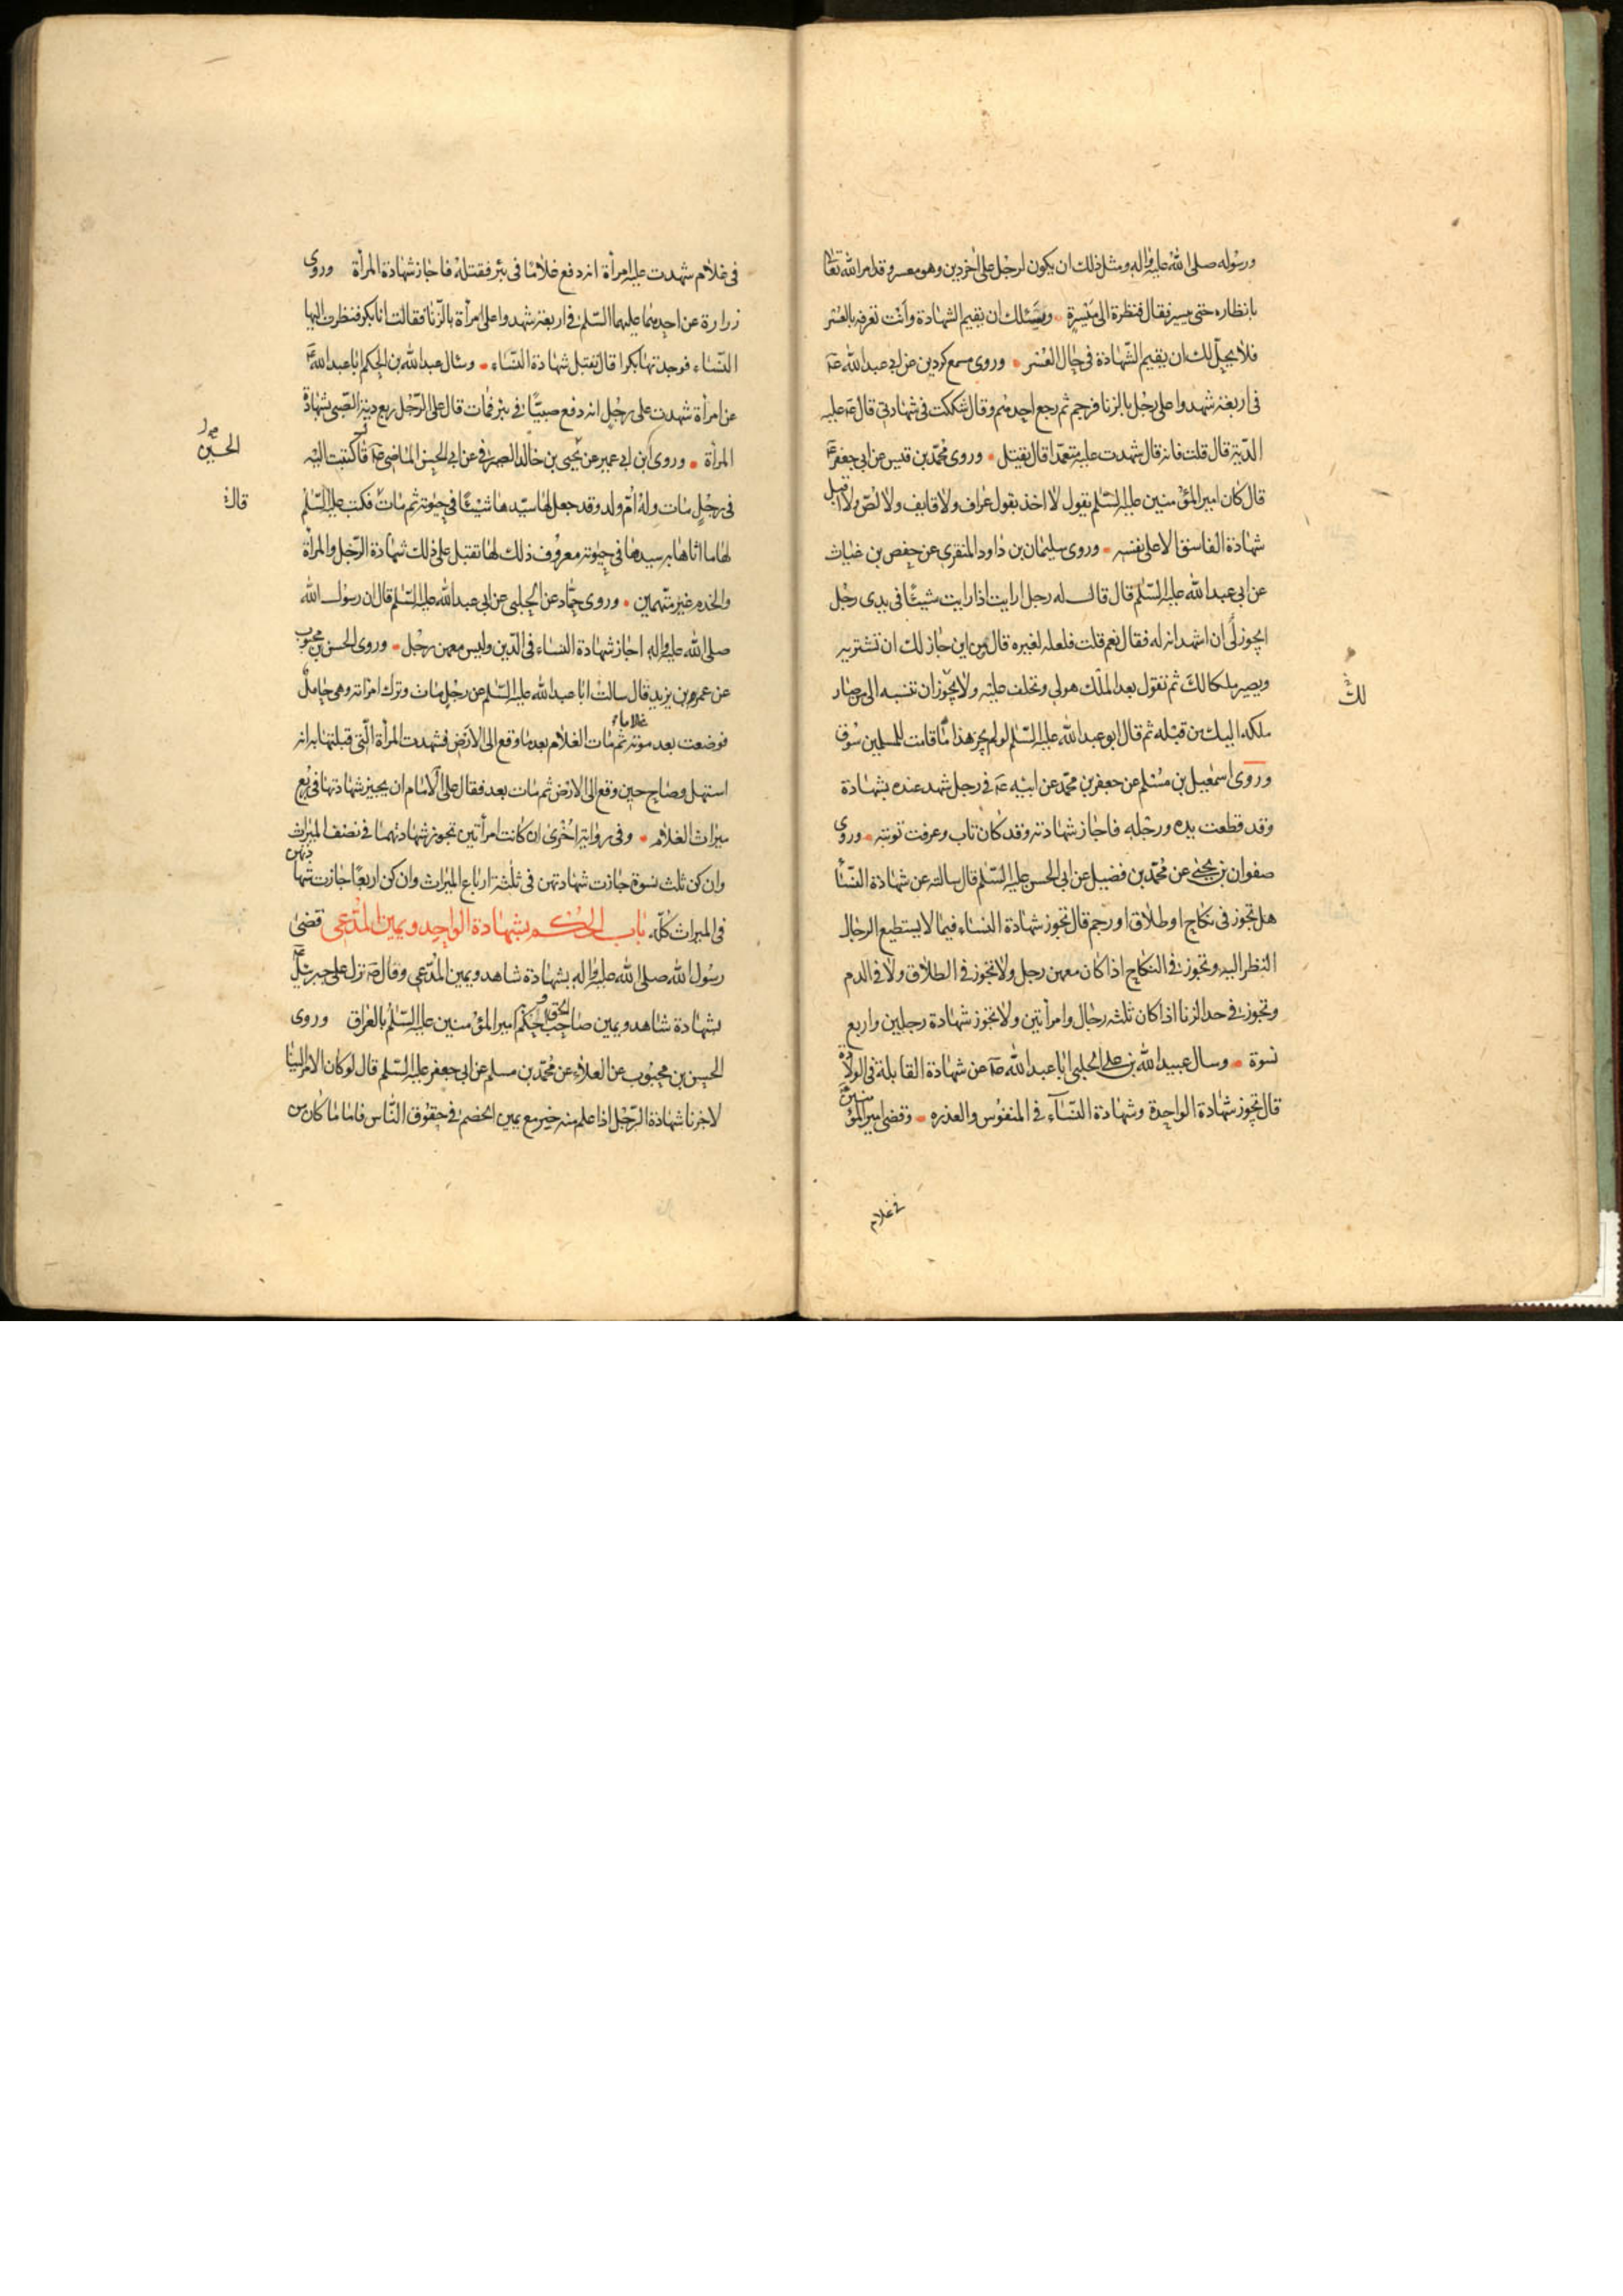 ورسوله صلى الله عليه واله ومثل ذلك ان يكون لرجل على اخر دين وهو معسر وقد امر الله تعالى
بانظاره حتى ييسر فقال فنظرة الى ميسرة ويسئلك ان تقيم الشهادة وأنت تعرفه بالعسر
فلا يحل لك ان تقيم الشهادة في حال العسر وروى مسمع كردين عن ابي عبد الله ع
في اربعة شهدوا على رجل بالزنا فرجم ثم رجع احدهم وقال شككت في شهادتي قال ع عليه
الدية قال قلت فانه قال شهدت عليه متعمدا قال يقتل وروى محمد بن قيس عن ابي جعفر ع
قال كان امير المؤمنين عليه السلم يقول لا اخذ بقول عراف ولا قايف ولا لص ولا اقبل
شهادة الفاسق الا على نفسه وروى سليمان بن داود المنقري عن حفص بن غياث
عن ابي عبد الله عليه السلم قال قال له رجل ارايت اذا رايت شيئا في يدى رجل
ايجوز لي ان اشهد انه له فقال نعم قلت فلعله لغيره قال من اين جاز لك ان تشتريه
ويصير ملكا لك ثم تقول بعد الملك هو لي وتحلف عليه ولا يجوز ان تنسبه الى من صار
لك
ملكه اليك من قبله ثم قال ابو عبد الله عليه السلم لو لم يجز هذا ما قامت للمسلمين سوق
وروى اسمعيل بن مسلم عن جعفر بن محمد عن ابيه ع في رجل شهد عنده بشهادة
وقد قطعت يده ورجله فاجاز شهادته وقد كان تاب وعرفت توبته وروى
صفوان بن يحيى عن محمد بن فضيل عن ابي الحسن عليه السلم قال سالته عن شهادة النساء
هل تجوز في نكاح او طلاق او رجم قال تجوز شهادة النساء فيما لا يستطيع الرجال
النظر اليه وتجوز في النكاح اذا كان معهن رجل ولا تجوز في الطلاق ولا في الدم
وتجوز في حد الزنا اذا كان ثلثه رجال وامرأتين ولا تجوز شهادة رجلين واربع
نسوة وسال عبيد الله بن على الحلبي ابا عبد الله ع عن شهادة القابلة في الولادة
قال تجوز شهادة الواحدة وشهادة النسآء في المنفوس والعذره وقضى امير المؤمنين ع
في غلام
في غلام شهدت عليه امرأة انه دفع غلاما في بئر فقتله فاجاز شهادة المرأة وروى
زرارة عن احدهما عليهما السلم في اربعة شهدوا على امرأة بالزنا فقالت انا بكر فنظرت اليها
النساء فوجدتها بكرا قال تقبل شهادة النساء وسال عبد الله بن الحكم ابا عبد الله ع
عن امرأة شهدت على رجل انه دفع صبيا في بئر فمات قال على الرجل ربع دية الصبي بشهادة
المرأة وروى ابن ابي عمير عن يحيى بن خالد الصيرفي عن ابي الحسن الماضي ع قال كتبت اليه
الحسين
قال
في رجل مات وله ام ولد وقد جعل لها سيدها شيئا في حيوته ثم مات فكتب عليه السلم
لها ما اثابها به سيدها في حيوته معروف ذلك لها تقبل على ذلك شهادة الرجل والمرأة
والخدم غير متهمين وروى حماد عن الحلبي عن ابي عبد الله عليه السلم قال ان رسول الله
صلى الله عليه واله اجاز شهادة النساء في الدين وليس معهن رجل وروى الحسن بن محبوب
عن عمر بن يزيد قال سالت ابا عبد الله عليه السلم عن رجل مات وترك امرأته وهي حامل
فوضعت بعد موته غلاما ثم مات الغلام بعد ما وقع الى الارض فشهدت المرأة التي قبلتها به انه
استهل وصاح حين وقع الى الارض ثم مات بعد فقال على الامام ان يجيز شهادتها في ربع
ميراث الغلام وفي رواية اخرى ان كانت امرأتين تجوز شهادتهما في نصف الميراث
وان كن ثلث نسوة جازت شهادتهن في ثلثة ارباع الميراث وان كن اربعا جازت شهادتهن
في الميراث كله باب الحكم بشهادة الواحد ويمين المدعي قضى
رسول الله صلى الله عليه واله بشهادة شاهد ويمين المدعي وقال ص نزل على جبرئيل ع
بشهادة شاهد ويمين صاحب الحق وحكم به امير المؤمنين عليه السلم بالعراق وروى
الحسن بن محبوب عن العلاء عن محمد بن مسلم عن ابي جعفر عليه السلم قال لو كان الامر الينا
لاجزنا شهادة الرجل اذا علم منه خير مع يمين الخصم في حقوق الناس فاما ما كان من